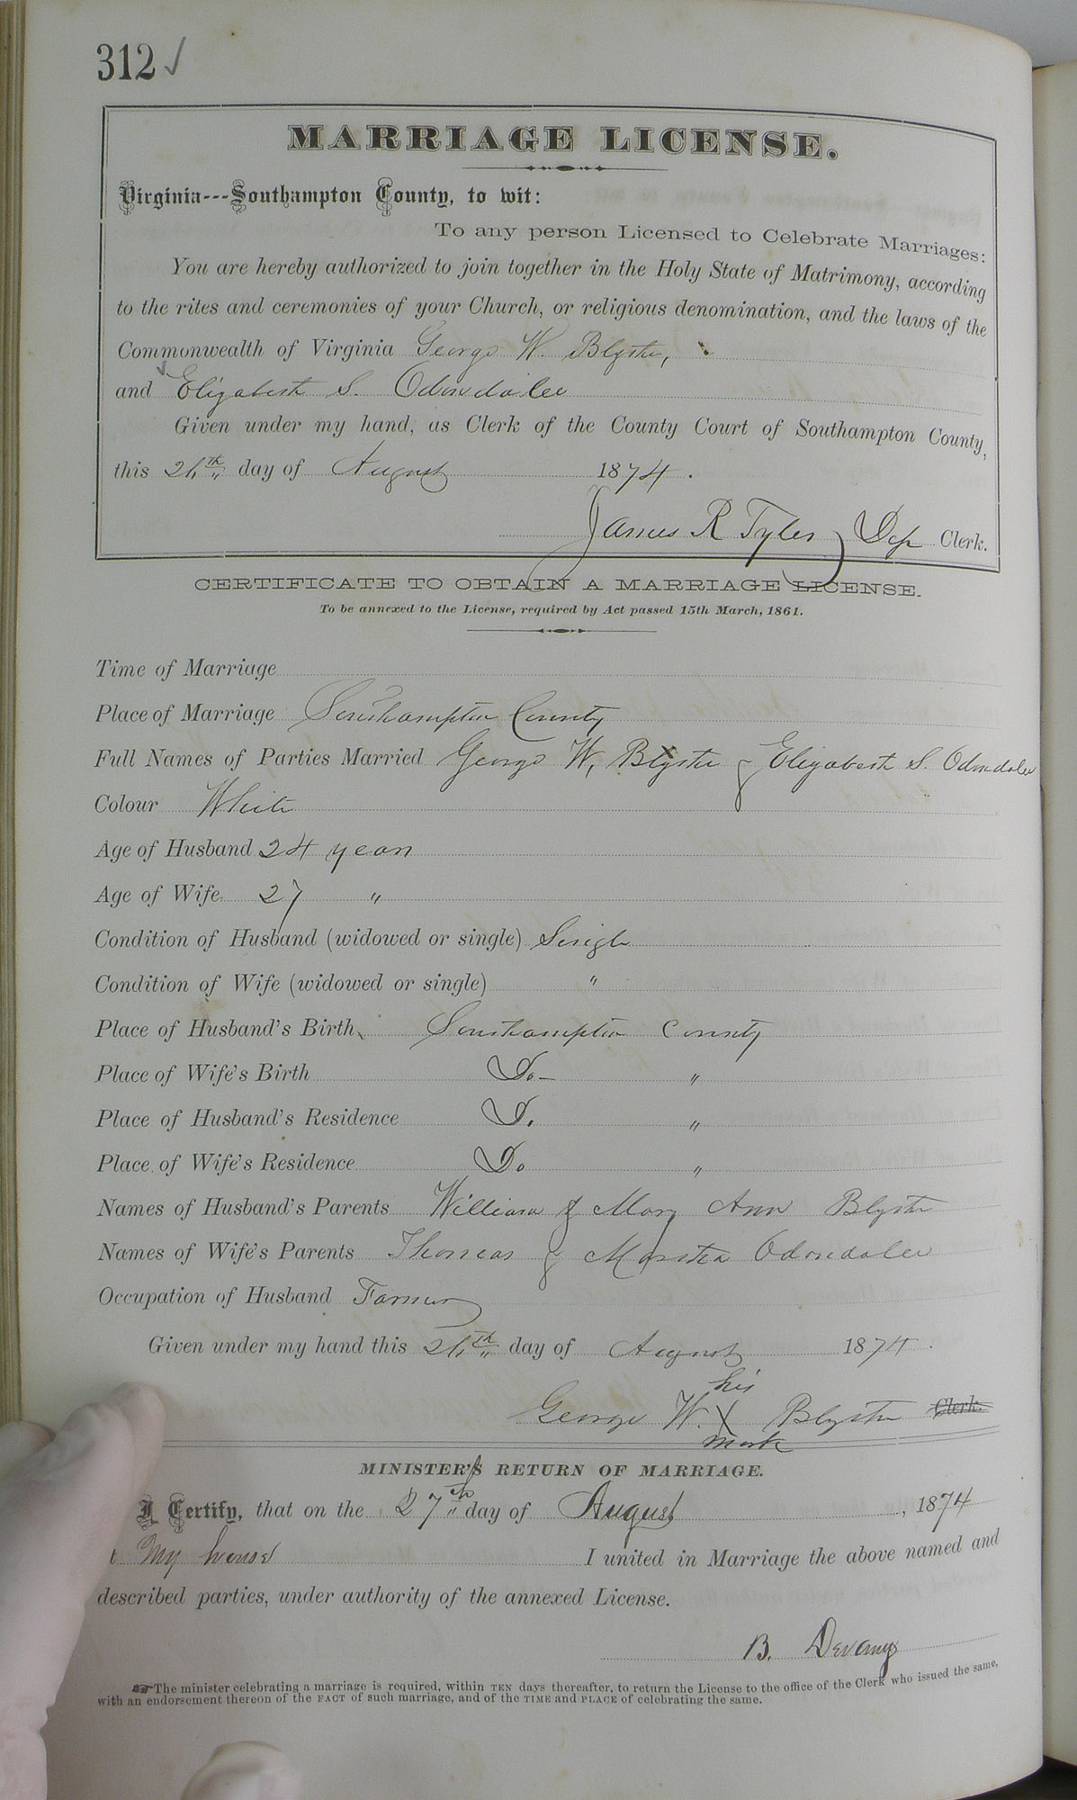 312 ✓
MARRIAGE LICENSE.
Virginia---Southampton County, to wit:
To any person Licensed to Celebrate Marriages:
You are hereby authorized to join together in the Holy State of Matrimony, according
to the rites and ceremonies of your Church, or religious denomination, and the laws of the
Commonwealth of Virginia George W. Blyster,
and Elizabeth S. Odondalee
Given under my hand, as Clerk of the County Court of Southampton County,
this 26th day of August 1874.
James R Tyler, Dep Clerk.
CERTIFICATE TO OBTAIN A MARRIAGE LICENSE.
To be annexed to the License, required by Act passed 15th March, 1861.
Time of Marriage
Place of Marriage Southampton County
Full Names of Parties Married George W, Blyster & Elizabeth S. Odondalee
Colour White
Age of Husband 24 years
Age of Wife 27 "
Condition of Husband (widowed or single) Single
Condition of Wife (widowed or single) "
Place of Husband's Birth Southampton County
Place of Wife's Birth Do "
Place of Husband's Residence Do "
Place of Wife's Residence Do "
Names of Husband's Parents William & Mary Ann Blyster
Names of Wife's Parents Thomas & Martha Odondalee
Occupation of Husband Farmer
Given under my hand this 26th day of August 1874.
his
George W. X Blyster Clerk.
mark
MINISTER'S RETURN OF MARRIAGE.
I Certify, that on the 27th day of August, 1874
t My house I united in Marriage the above named and
described parties, under authority of the annexed License.
B. Devany
☞The minister celebrating a marriage is required, within TEN days thereafter, to return the License to the office of the Clerk who issued the same,
with an endorsement thereon of the FACT of such marriage, and of the TIME and PLACE of celebrating the same.